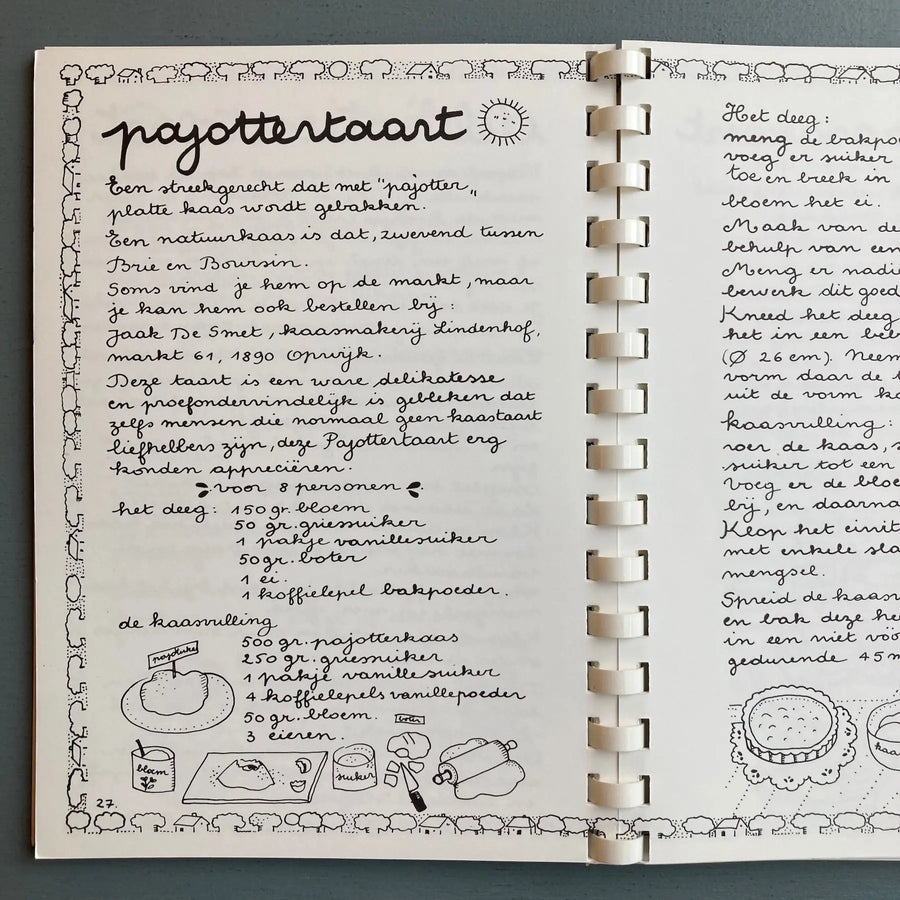 pajottertaart
Een streekgerecht dat met "pajotter„
platte kaas wordt gebakken.
Een natuurkaas is dat, zwevend tussen
Brie en Boursin.
Soms vind je hem op de markt, maar
je kan hem ook bestellen bij:
Jaak De Smet, kaasmakerij Lindenhof,
markt 61, 1890 Opwijk.
Deze taart is een ware delikatesse
en proefondervindelijk is gebleken dat
zelfs mensen die normaal geen kaastaart
liefhebbers zijn, deze Pajottertaart erg
konden appreciëren.
voor 8 personen
het deeg: 150 gr. bloem
50 gr. griessuiker
1 pakje vanillesuiker
50 gr. boter
1 ei.
1 koffielepel bakpoeder.
de kaasvulling
500 gr. pajotterkaas
250 gr. griessuiker
1 pakje vanillesuiker
4 koffielepels vanillepoeder
50 gr. bloem.
3 eieren.
boter
bloem
suiker
27.
Het deeg:
meng de bakpo
voeg er suiker
toe en breek in
bloem het ei.
Maak van de
behulp van een
Meng er nadie
bewerk dit goed
Kneed het deeg
het in een beb
(Ø 26 cm). Neem
vorm daar de t
uit de vorm ka
kaasvulling:
roer de kaas, s
suiker tot een
Voeg er de bloe
bij, en daarna
Klop het eiwit
met enkele sla
mengsel.
Spreid de kaasv
en bak deze he
in een niet vóó
gedurende 45 m
kaa